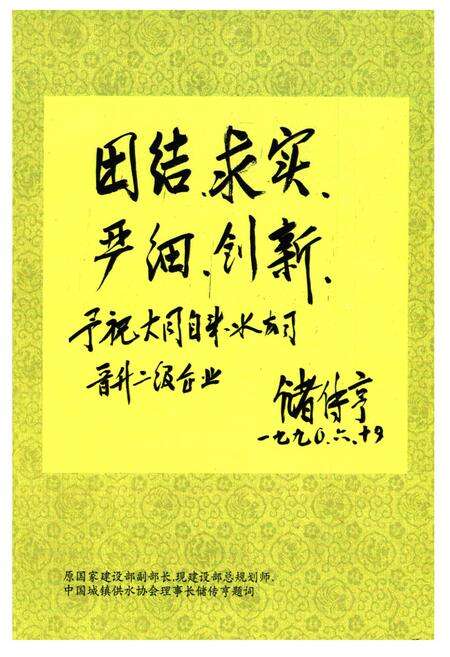 团结、求实、
严细、创新、
予祝大同自来水公司
晋升二级企业
储传亨
一九九〇.六.十9
原国家建设部副部长,现建设部总规划师,
中国城镇供水协会理事长储传亨题词